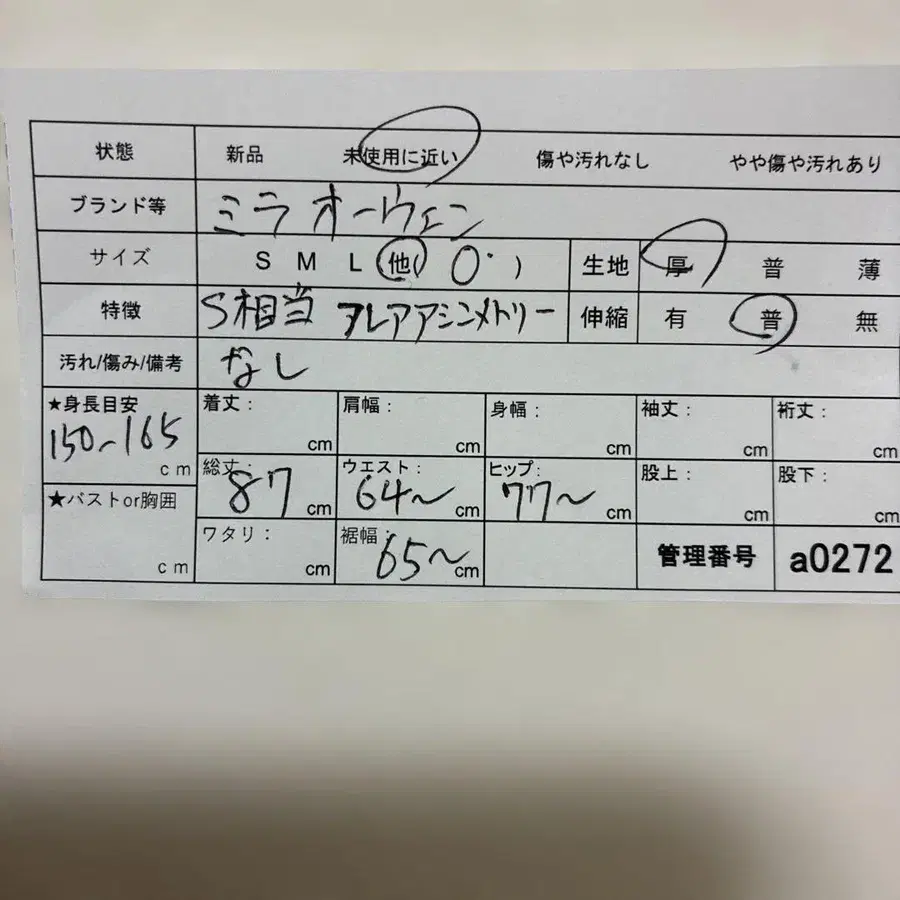 状態 新品 未使用に近い 傷や汚れなし やや傷や汚れあり
ブランド等 ミラオーウェン
サイズ S M L 他( 0 ) 生地 厚 普 薄
特徴 S相当 フレアアシンメトリー 伸縮 有 普 無
汚れ/傷み/備考 なし
★身長目安 着丈: 肩幅: 身幅: 袖丈: 裄丈:
150~165 cm cm cm cm cm cm
総丈 ウエスト: ヒップ: 股上: 股下:
87 cm 64~ cm 77~ cm cm cm
★バストor胸囲 ワタリ: 裾幅: 管理番号 a0272
cm cm 65~ cm